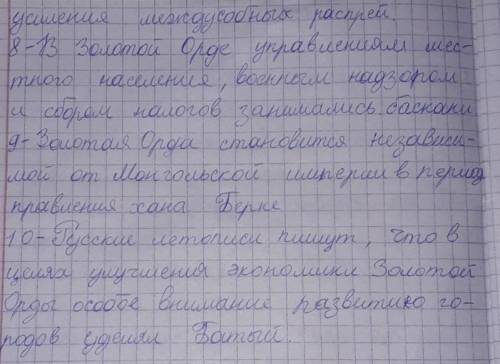 усиления междусобных распрей.
8-В Золотой Орде управлениям мес-
тного населения, военным надзором
и сбором налогов занимались баскаки
9-Золотая Орда становится независи-
мой от Монгольской империи в период
правления хана Берке
10-Русские летописи пишут, что в
целях улучшения экономики Золотой
Орды особое внимание развитию го-
родов уделял Батый.